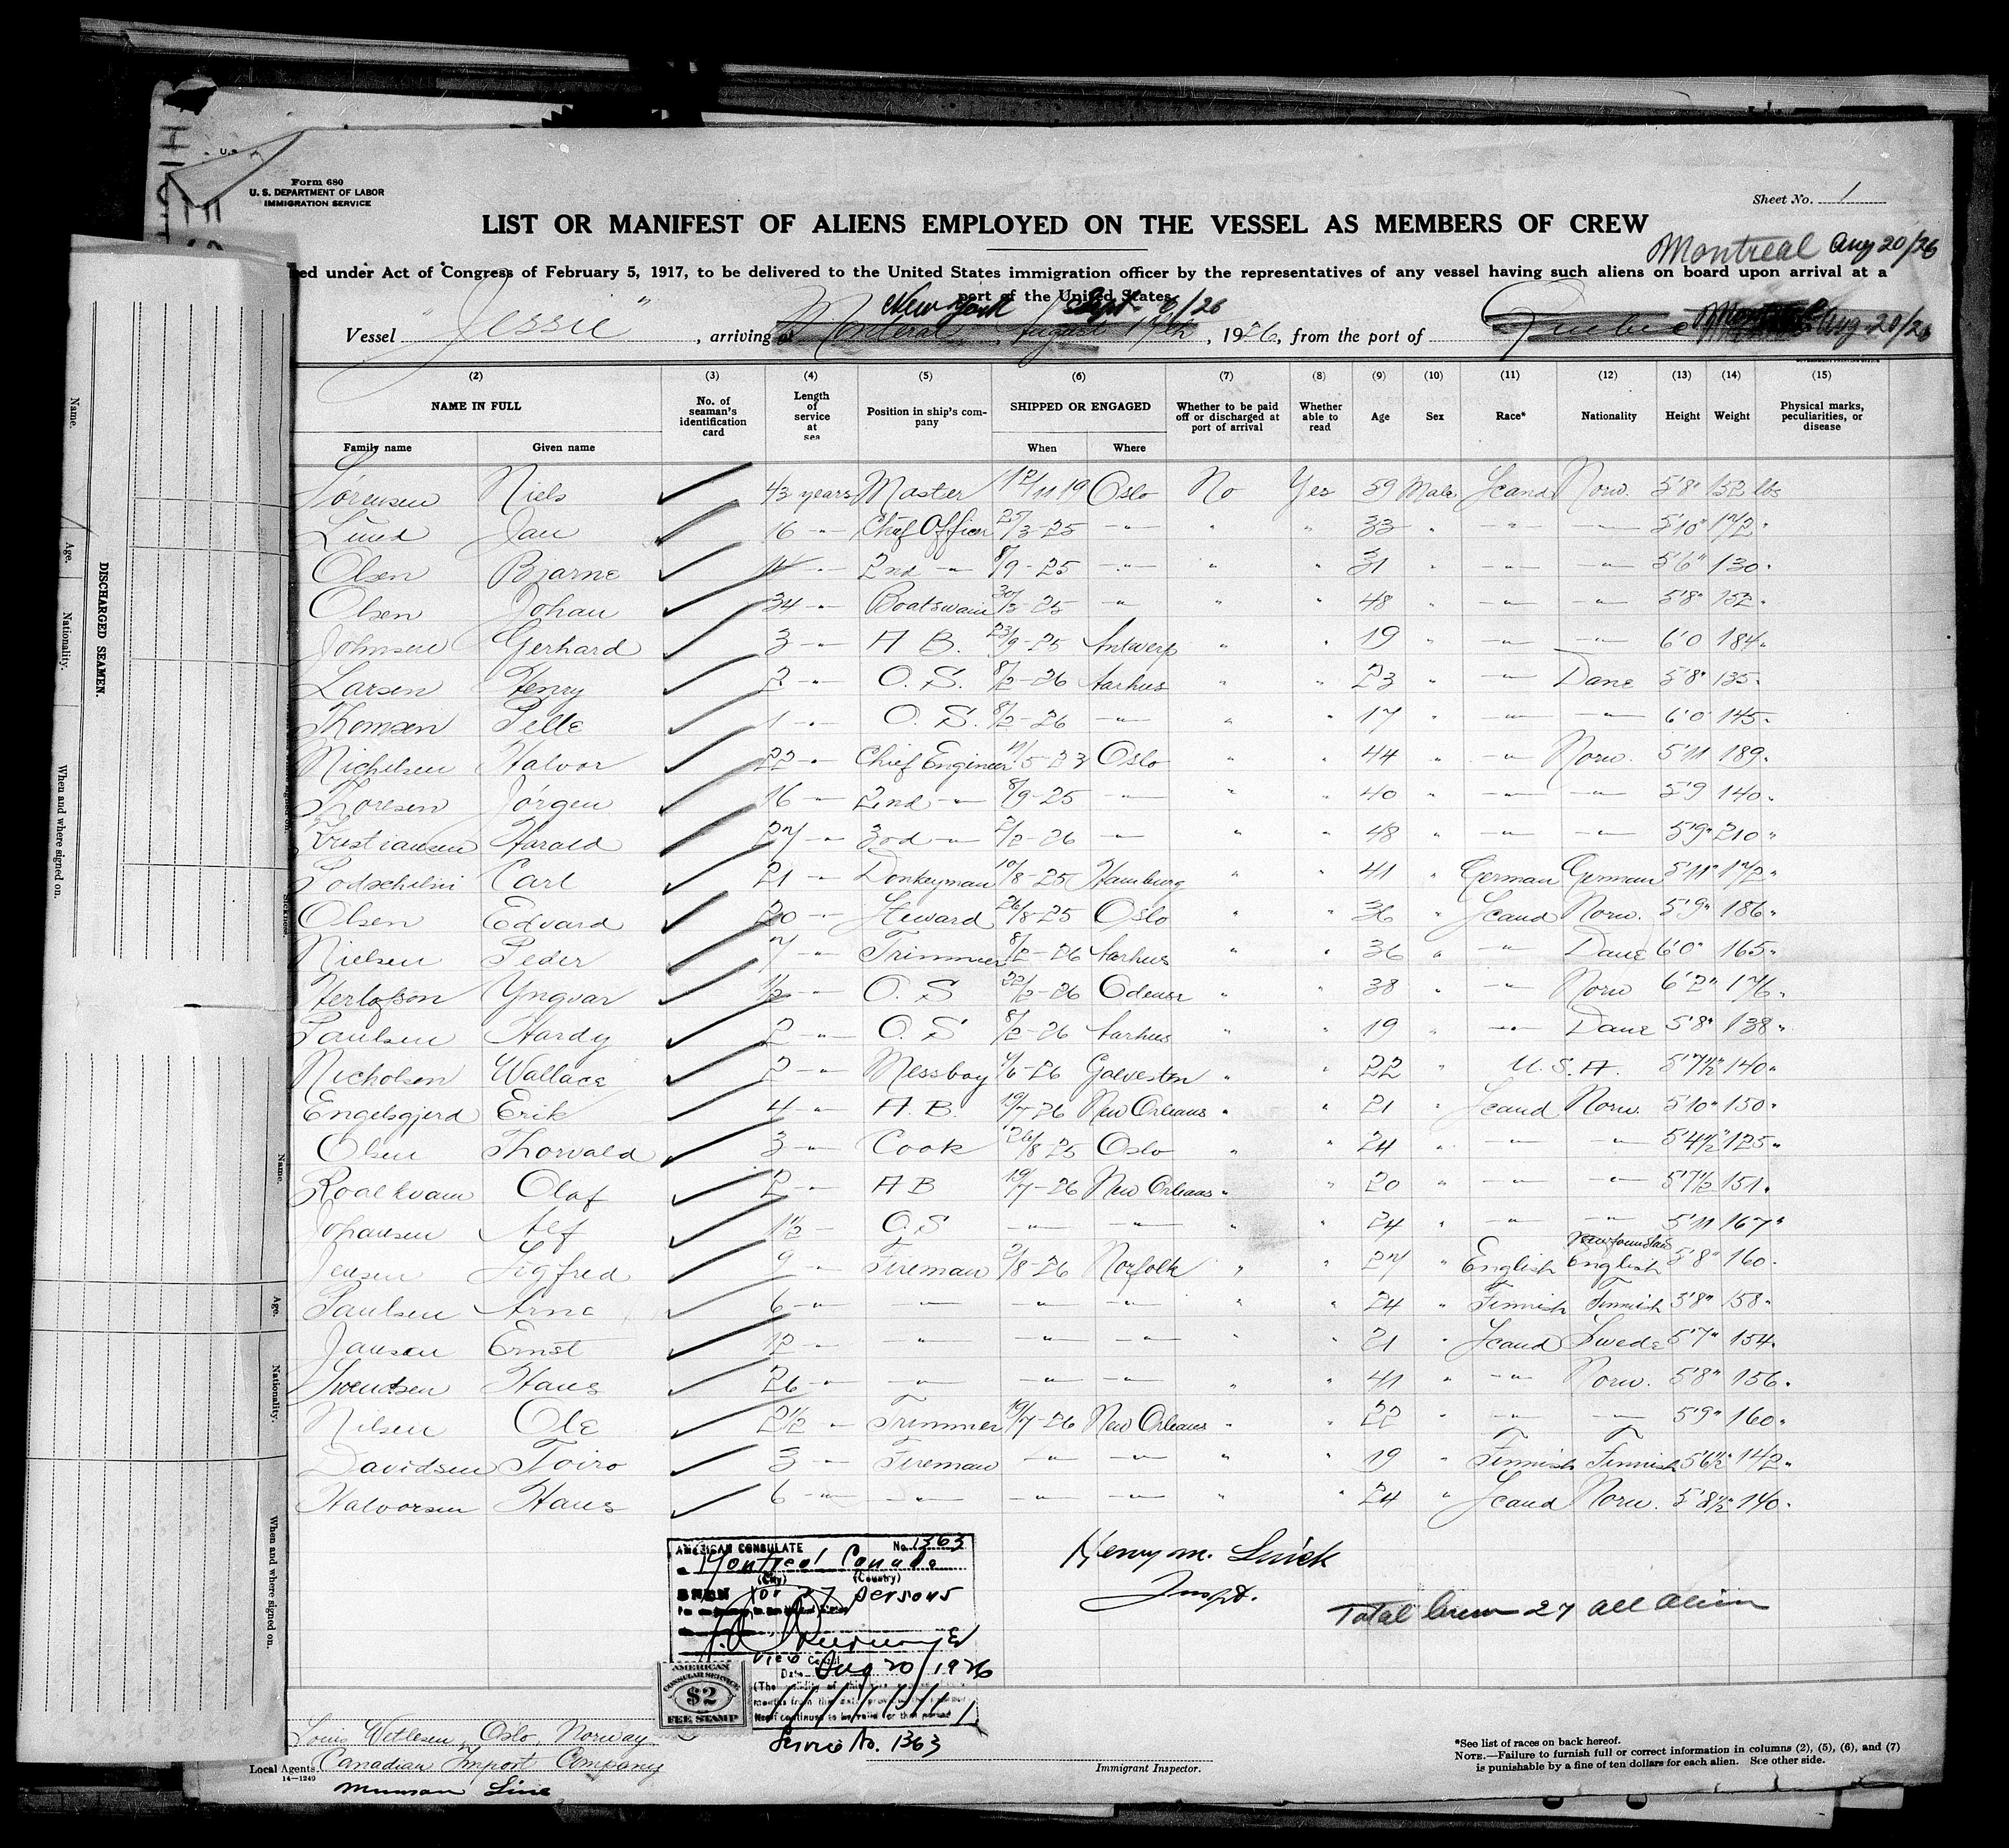 Form 680
U. S. DEPARTMENT OF LABOR
IMMIGRATION SERVICE
Sheet No. 1
LIST OR MANIFEST OF ALIENS EMPLOYED ON THE VESSEL AS MEMBERS OF CREW
Montreal Aug 20/26
ed under Act of Congress of February 5, 1917, to be delivered to the United States immigration officer by the representatives of any vessel having such aliens on board upon arrival at a
port of the United States
New York Sept 6/26
Vessel "Jessie" , arriving at Monteral , August 19th , 1926, from the port of Quebec Montreal Aug 20/26
(2) (3) (4) (5) (6) (7) (8) (9) (10) (11) (12) (13) (14) (15)
NAME IN FULL No. of seaman's identification card Length of service at sea Position in ship's company SHIPPED OR ENGAGED Whether to be paid off or discharged at port of arrival Whether able to read Age Sex Race* Nationality Height Weight Physical marks, peculiarities, or disease
Family name Given name When Where
Sörensen Niels 43 years Master 12/11 19 Oslo No Yes 59 Male Scand Norw. 5'8" 152 lbs
Lund Jan 16 -"- Chief Officer 25/3-25 -"- " " 33 " -"- -"- 5'10" 172 "
Olsen Bjarne 14 -"- 2nd -"- 8/9-25 -"- " " 31 " -"- -"- 5'6" 130 "
Olsen Johan 34 -"- Boatswain -25 -"- " " 48 " -"- -"- 5'8" 152 "
Johnsen Gerhard 3 -"- A B. 23/9-25 Antwerp " " 19 " -"- -"- 6'0 184 "
Larsen Henry 2 -"- O. S. 8/2-26 Aarhus " " 23 " -"- Dane 5'8" 135 "
Thomsen Pelle 1 -"- O. S. 8/2-26 -"- " " 17 " -"- -"- 6'0" 145 "
Michelsen Halvor 22 -"- Chief Engineer /5-23 Oslo " " 44 " -"- Norw. 5'11 189 "
Thoresen Jörgen 16 -"- 2nd -"- 8/9-25 -"- " " 40 " -"- -"- 5'9 140 "
Kristiansen Harald 27 -"- 3rd -"- 2/2-26 -"- " " 48 " -"- -"- 5'9" 210 "
Carl 21 -"- Donkeyman 10/8-25 Hamburg " " 41 " German German 5'11" 172 "
Olsen Edvard 20 -"- Steward 26/8-25 Oslo " " 36 " Scand Norw. 5'9" 186 "
Nielsen Peder 7 -"- Trimmer 8/2-26 Aarhus " " 36 " -"- Dane 6'0" 165 "
Herlofson Yngvar 1/2 -"- O. S 22/2-26 Odense " " 38 " -"- Norw 6'2" 176 "
Paulsen Hardy 2 -"- O. S 8/2-26 Aarhus " " 19 " -"- Dane 5'8" 138 "
Nicholson Wallace 2 -"- Messboy /6-26 Galveston " " 22 " U. S. A. 5'7 1/2" 140 "
Engelsgjerd Erik 4 -"- A. B. 19/7-26 New Orleans " " 21 " Scand Norw. 5'10" 150 "
Olsen Thorvald 3 -"- Cook 26/8-25 Oslo " " 24 " -"- -"- 5'4 1/2" 125 "
Roalkvam Olaf 2 -"- A B 19/7-26 New Orleans " " 20 " -"- -"- 5'7 1/2 151 "
Johansen Alf 1 1/2 - O. S -"- -"- " " 24 " -"- -"- 5'11 167 "
Newfoundland
Jensen Sigfred 9 -"- Fireman 2/8-26 Norfolk " " 27 " English English 5'8" 160 "
Paulsen Arne 6 -"- -"- -"- -"- " " 24 " Finnish Finnish 5'8" 158 "
Jansen Ernst 12 -"- -"- -"- -"- " " 21 " Scand Swede 5'7" 154 "
Svendsen Hans 26 -"- -"- -"- -"- " " 41 " -"- Norw. 5'8" 156 "
Nilsen Ole 2 1/2 -"- Trimmer 19/7-26 New Orleans " " 22 " -"- -"- 5'9" 160 "
Davidsen Toivo 3 -"- Fireman -"- -"- " " 19 " Finnish Finnish 5'6 1/2" 142 "
Halvorsen Hans 6 -"- -"- -"- -"- " " 24 " Scand Norw. 5'8 1/2" 140 "
AMERICAN CONSULATE No. 1363
Montreal Canada
(City) (Country)
SEEN for 27 persons
Vice Consul
Date Aug 20/1926
AMERICAN
CONSULAR SERVICE
$2
FEE STAMP
Service No. 1363
Henry M.
Inspt.
Total Crew 27 all alien
Louis Wetlesen, Oslo, Norway
Local Agents Canadian Import Company
14—1240
Munson Line
Immigrant Inspector.
*See list of races on back hereof.
NOTE.—Failure to furnish full or correct information in columns (2), (5), (6), and (7)
is punishable by a fine of ten dollars for each alien. See other side.
DISCHARGED SEAMEN.
Name.
Age.
Nationality.
When and where signed on.
Name.
Age.
Nationality.
When and where signed on.